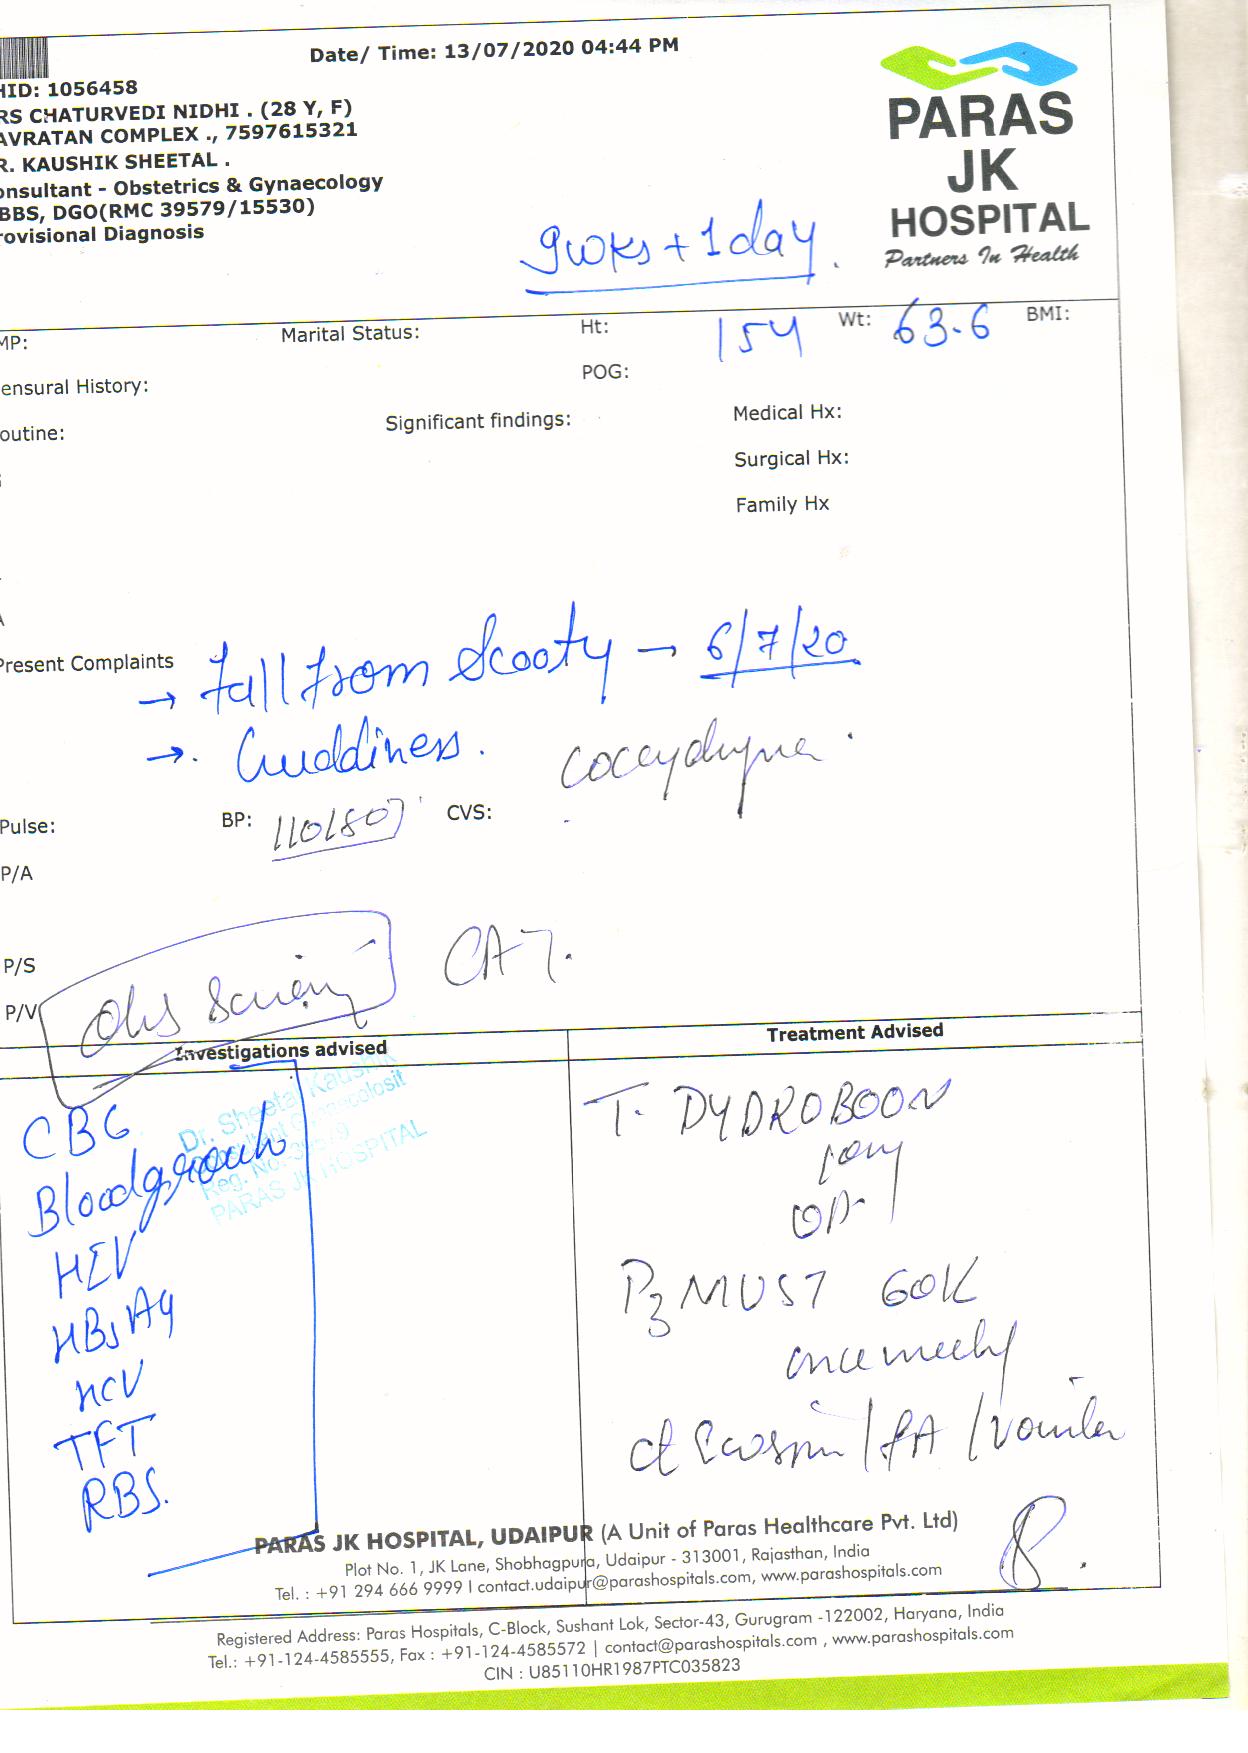 Date/ Time: 13/07/2020 04:44 PM
HID: 1056458
RS CHATURVEDI NIDHI . (28 Y, F)
AVRATAN COMPLEX ., 7597615321
R. KAUSHIK SHEETAL .
onsultant - Obstetrics & Gynaecology
BBS, DGO(RMC 39579/15530)
rovisional Diagnosis
PARAS
JK
HOSPITAL
Partners In Health
9wks + 1 day.
MP: Marital Status: Ht: 154 Wt: 63.6 BMI:
ensural History: POG:
outine: Significant findings: Medical Hx:
Surgical Hx:
Family Hx
Present Complaints → Fall from Scooty → 6/7/20
→ Guddiness. coccydynia
Pulse: BP: 110/80 CVS:
P/A
P/S
P/V Obs
Investigations advised Treatment Advised
Dr. Sheetal Kaushik
Reg. No.-39579
PARAS JK HOSPITAL
CBC
Bloodgrouh
HIV
HBsAg
HCV
TFT
RBS.
T. DYDROBOON
10mg
OD
D3 MUST 60K
once weekly
PARAS JK HOSPITAL, UDAIPUR (A Unit of Paras Healthcare Pvt. Ltd)
Plot No. 1, JK Lane, Shobhagpura, Udaipur - 313001, Rajasthan, India
Tel. : +91 294 666 9999 I contact.udaipur@parashospitals.com, www.parashospitals.com
Registered Address: Paras Hospitals, C-Block, Sushant Lok, Sector-43, Gurugram -122002, Haryana, India
Tel.: +91-124-4585555, Fax : +91-124-4585572 | contact@parashospitals.com , www.parashospitals.com
CIN : U85110HR1987PTC035823